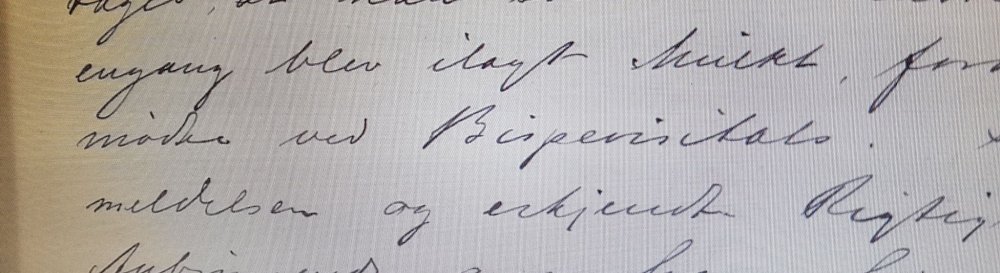 engang blev ilagt Mulkt, for
møde ved Bispevisitats.
meldelsen og erkjendte Rigtig